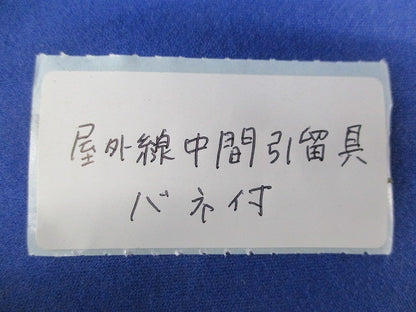 屋外線中間引留具
バネ付